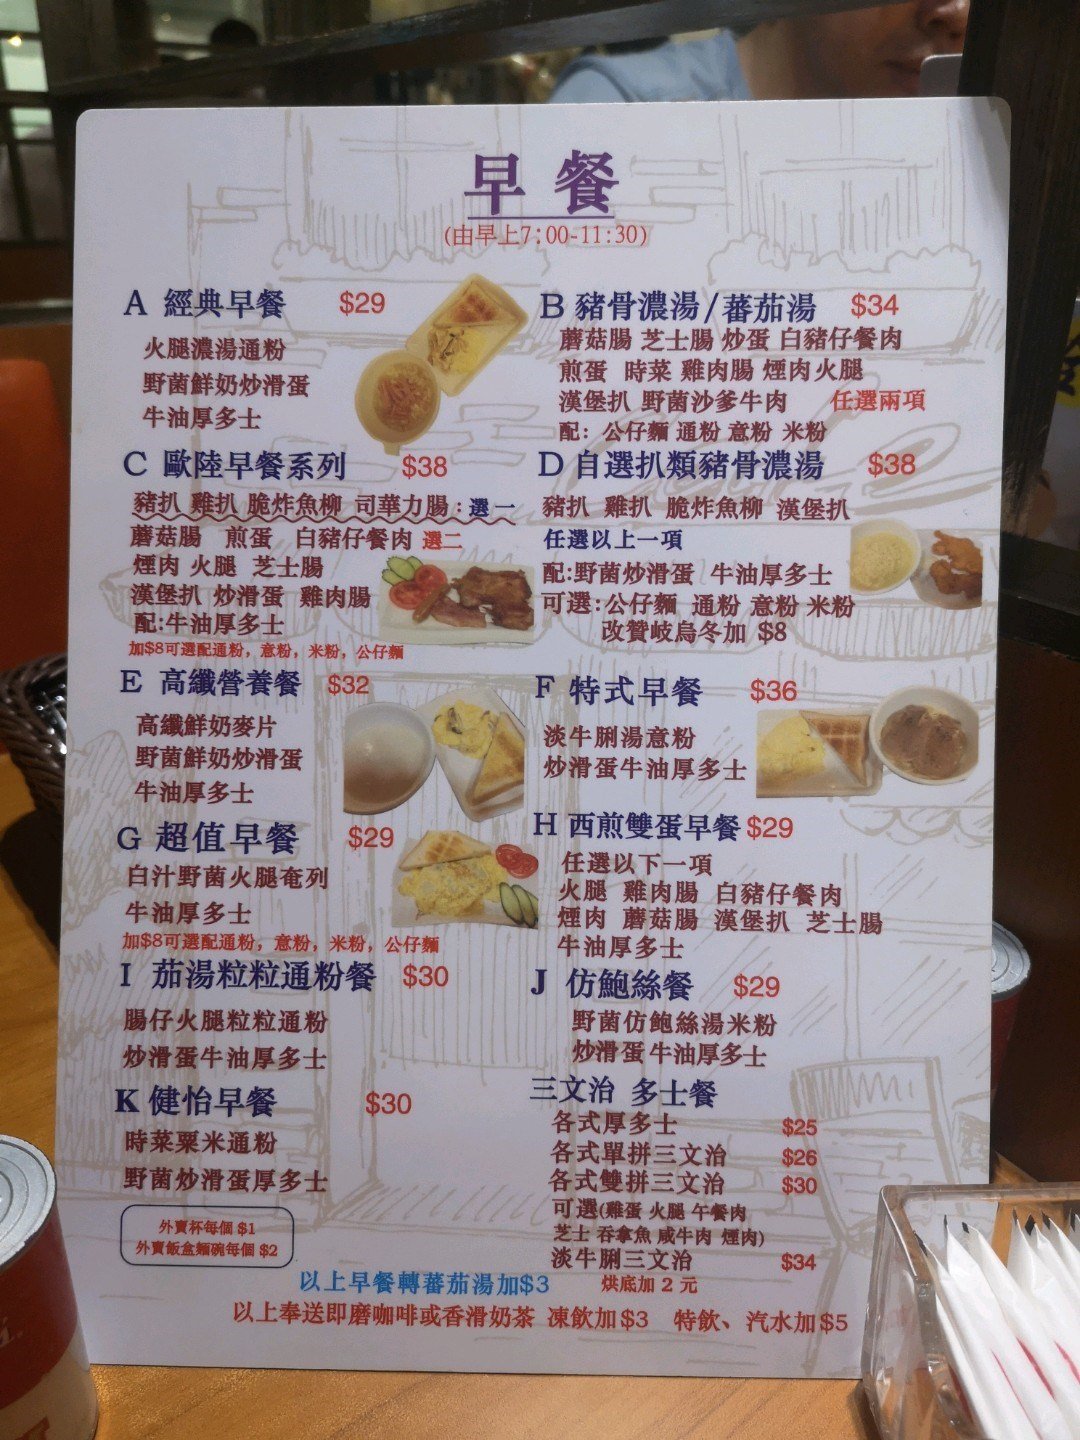 早餐
(由早上7:00-11:30)
A 經典早餐 $29
火腿濃湯通粉
野菌鮮奶炒滑蛋
牛油厚多士
B 豬骨濃湯/蕃茄湯 $34
蘑菇腸 芝士腸 炒蛋 白豬仔餐肉
煎蛋 時菜 雞肉腸 煙肉火腿
漢堡扒 野菌沙爹牛肉 任選兩項
配: 公仔麵 通粉 意粉 米粉
C 歐陸早餐系列 $38
豬扒 雞扒 脆炸魚柳 司華力腸:選一
蘑菇腸 煎蛋 白豬仔餐肉 選二
煙肉 火腿 芝士腸
漢堡扒 炒滑蛋 雞肉腸
配:牛油厚多士
加$8可選配通粉，意粉，米粉，公仔麵
D 自選扒類豬骨濃湯 $38
豬扒 雞扒 脆炸魚柳 漢堡扒
任選以上一項
配:野菌炒滑蛋 牛油厚多士
可選:公仔麵 通粉 意粉 米粉
改贊岐烏冬加 $8
E 高纖營養餐 $32
高纖鮮奶麥片
野菌鮮奶炒滑蛋
牛油厚多士
F 特式早餐 $36
淡牛脷湯意粉
炒滑蛋牛油厚多士
G 超值早餐 $29
白汁野菌火腿奄列
牛油厚多士
加$8可選配通粉，意粉，米粉，公仔麵
H 西煎雙蛋早餐 $29
任選以下一項
火腿 雞肉腸 白豬仔餐肉
煙肉 蘑菇腸 漢堡扒 芝士腸
牛油厚多士
I 茄湯粒粒通粉餐 $30
腸仔火腿粒粒通粉
炒滑蛋牛油厚多士
J 仿鮑絲餐 $29
野菌仿鮑絲湯米粉
炒滑蛋牛油厚多士
K 健怡早餐 $30
時菜粟米通粉
野菌炒滑蛋厚多士
三文治 多士餐
各式厚多士 $25
各式單拼三文治 $26
各式雙拼三文治 $30
可選(雞蛋 火腿 午餐肉
芝士 吞拿魚 咸牛肉 煙肉)
淡牛脷三文治 $34
烘底加 2 元
外賣杯每個 $1
外賣飯盒麵碗每個 $2
以上早餐轉蕃茄湯加$3
以上奉送即磨咖啡或香滑奶茶 凍飲加$3 特飲、汽水加$5